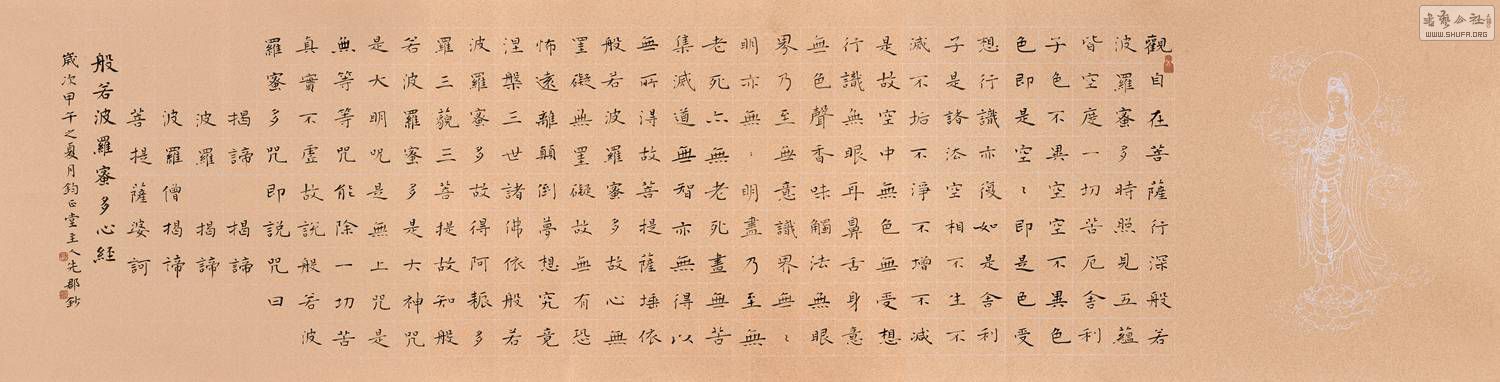 觀自在菩薩行深般若
波羅蜜多時照見五蘊
皆空度一切苦厄舍利
子色不異空空不異色
色即是空〻即是色受
想行識亦復如是舍利
子是諸法空相不生不
滅不垢不淨不增不減
是故空中無色無受想
行識無眼耳鼻舌身意
無色聲香味觸法無眼
界乃至無意識界無〻
明亦無〻明盡乃至無
老死亦無老死盡無苦
集滅道無智亦無得以
無所得故菩提薩埵依
般若波羅蜜多故心無
罣礙無罣礙故無有恐
怖遠離顛倒夢想究竟
涅槃三世諸佛依般若
波羅蜜多故得阿耨多
羅三藐三菩提故知般
若波羅蜜多是大神咒
是大明呪是無上咒是
無等等咒能除一切苦
真實不虛故說般若波
羅蜜多咒即說咒曰
揭諦 揭諦
波羅 揭諦
波羅僧揭諦
菩提薩婆訶
般若波羅蜜多心經
歲次甲午之夏月鈞堂主人鈔
書藝公社
WWW.SHUFA.ORG